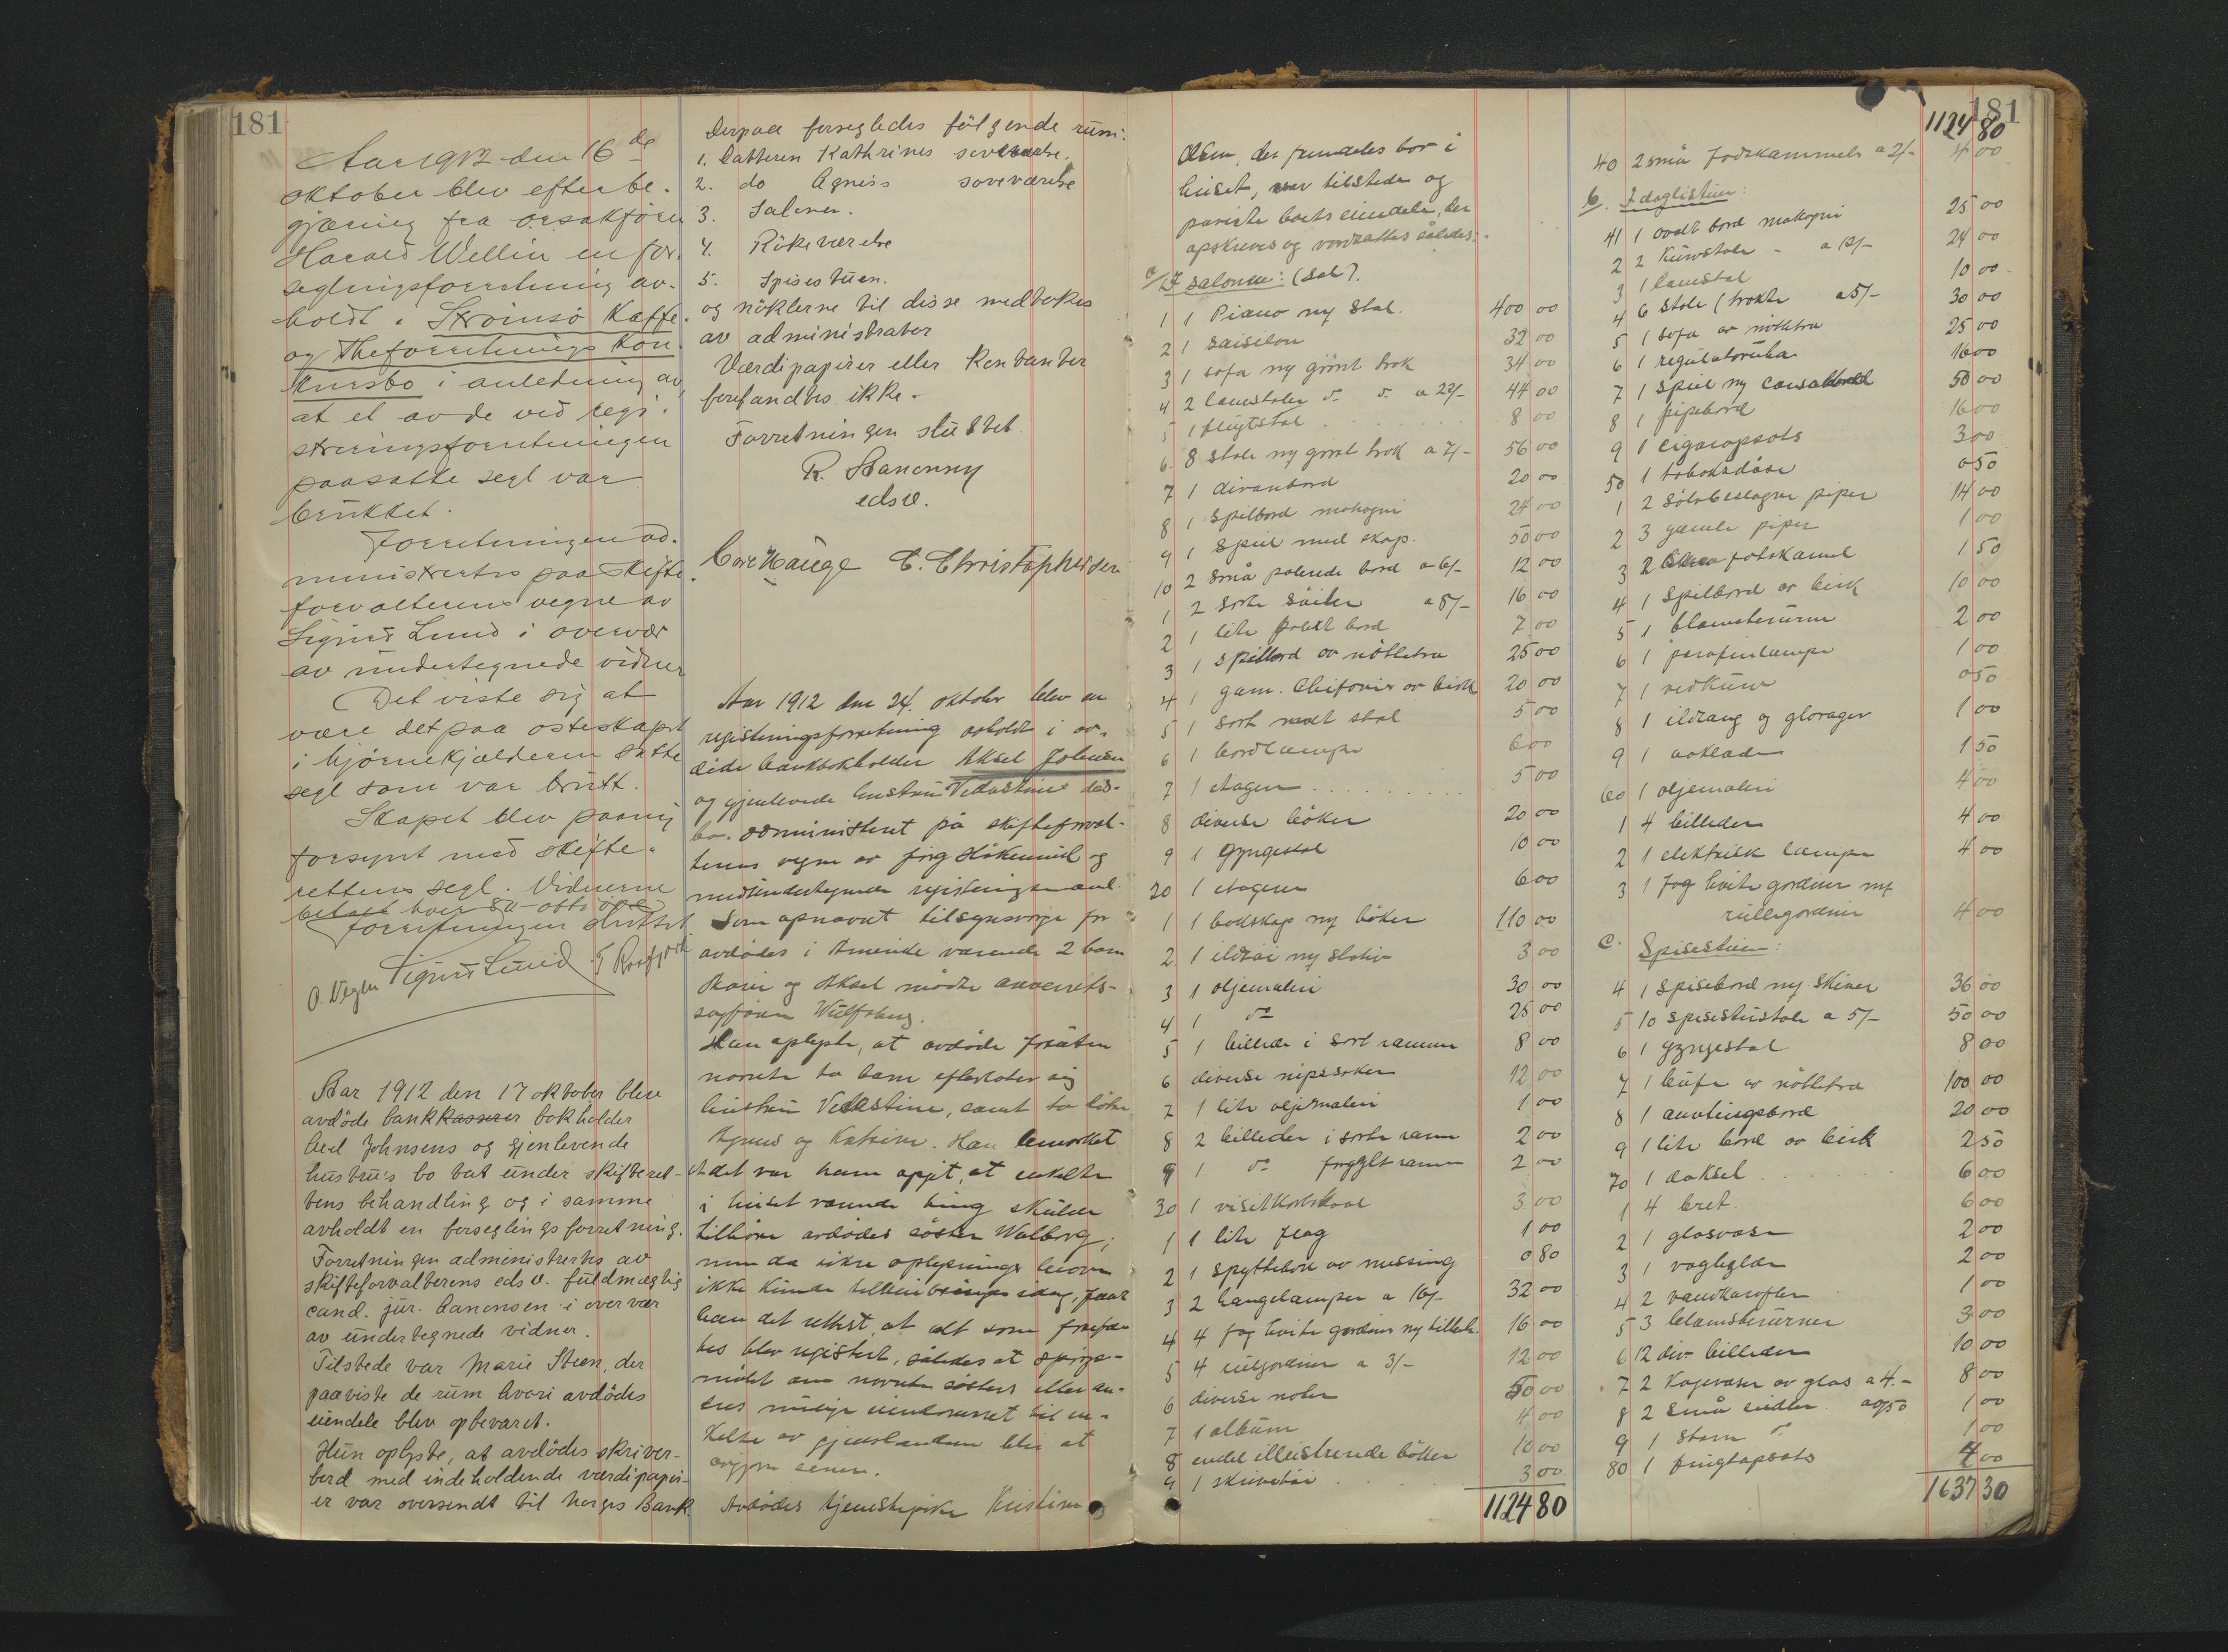 181
Aar 1912 den 16de
oktober blev efter be-
gjæring fra o.r.sakförer
Harald Wellin en for-
seglingsforretning av-
holdt i Strömsö Kaffe-
og Theforretnings kon-
kursbo i anledning av,
at et av de ved regi-
streringsforretningen
paasatte segl var
brukket.
Forretningen ad-
ministrertes paa skifte-
forvalterens vegne av
Sigurd Lund i overvær
av undertegnede vidner
Det viste sig at
være det paa osteskapet
i hjörnekjælderen satte
segl som var brutt.
Skapet blev paany
forsynt med skifte-
rettens segl. Vidnerne
betalt hver 80 - otti öre
Forretningen sluttet
Sigurd Lund
Aar 1912 den 17 oktober blev
avdöde bankkasserer bokholder
Axel Johnsens og gjenlevende
hustru's bo tat under skifteret-
tens behandling og i samme
avholdt en forseglingsforretning.
Forretningen administrertes av
skifteforvalterens edsv. fuldmægtig
cand. jur. Danonsen i overvær
av undertegnede vidner.
Tilstede var Marie Steen, der
paaviste de rum hvori avdödes
eiendele blev opbevaret.
Hun oplyste, at avdödes skriver-
bord med indeholdende værdipapir-
er var oversendt til Norges Bank.
Derpaa forsegledes fölgende rum:
1. Datteren Kathrines soveværelse.
2. do Agnes's soveværelse
3. Salonen.
4. Rökeværelse
5. Spisestuen.
og nöklerne til disse medtokes
av administrator
Værdipapirer eller Kontanter
forefandtes ikke.
Forretningen sluttet
edsv.
Hauge E. Christophersen
Aar 1912 den 24. oktober blev en
registreringsforretning avholdt i av-
döde bankbokholder Aksel Johnsen
og gjenlevende hustru Vedastine döds-
bo. administrert på skifteforval-
terens vegne av
medundertegnede registreringsmænd.
Som opnævnt tilsynsverge for
avdödes i Amerika værende 2 barn
og Aksel mödte overrets-
sagförer Wulfsberg.
Han oplyste, at avdöde foruten
nævnte to barn efterlater sig
hustru Vedastine, samt to dötre
Agnes og Katrine. Han bemerket
at det var ham opgit, at enkelte
i huset værende ting skulde
tilhöre avdödes söster Walborg;
men da sikre oplysninger herom
ikke kunde tilveiebringes idag, fandt
han det rettest, at alt som forefan-
tes blev registrert, således at spörs-
målet om nævnte sösters eller an-
dres mulige eiendomsret til en-
kelte av gjenstandene blir at
avgjöre senere.
Avdödes tjenestepike Kristine
Olsen, der fremdeles bor i
huset, var tilstede og
påviste boets eiendele, der
opskreves og verdsattes således:
a/ I salonen: (sal).
1 1 Piano m/ stol. 400 00
2 1 saiselon 32 00
3 1 sofa m/ grönt trek 34 00
4 2 lænestoler do do a 22/- 44 00
5 1 flygtstol 8 00
6. 8 stole m/ grönt trek a 7/- 56 00
7 1 divanbord 20 00
8 1 Spilbord mahogni 24 00
9 1 speil med skap. 50 00
10 2 små polerede bord a 6/- 12 00
1 2 sorte söiler a 8/- 16 00
2 1 lite polert bord 7 00
3 1 spilbord av nöttetræ 25 00
4 1 gam. chifonier av birk 20 00
5 1 sort malt stol 5 00
6 1 bordlampe 6 00
7 1 etagere 5 00
8 diverse böker 20 00
9 1 gyngestol 10 00
20 1 etagere 6 00
1 1 bokskap m/ böker 110 00
2 1 ildtöi m/ stativ 3 00
3 1 oljemaleri 30 00
4 1 do 25 00
5 1 billede i sort ramme 8 00
6 diverse nipssaker 12 00
7 1 lite oljemaleri 1 00
8 2 billeder i sorte ramm 2 00
9 1 do forgylt ramme 2 00
30 1 visitkortskaal 3 00
1 1 lite flag 1 00
2 1 spyttebak av messing 0 80
3 2 hængelamper a 16/- 32 00
4 4 fag hvite gardiner m/ tilbeh. 16 00
5 4 rulgardiner a 3/- 12 00
6 diverse noter 50 00
7 1 album 4 00
8 endel illustrerede böker 10 00
9 1 skrivetöi 3 00
1124 80
181
1124 80
40 2 små fodskammels a 2/- 4 00
b. I dagligstuen:
41 1 ovalt bord mahogni 25 00
2 2 kurvstole a 12/- 24 00
3 1 lænestol 10 00
4 6 stole (trukte a 5/- 30 00
5 1 sofa av nöttetræ 25 00
6 1 regulatoruhr 16 00
7 1 speil m/ consolbord 50 00
8 1 pipebord 16 00
9 1 cigaropsats 3 00
50 1 tobaksdåse 0 50
1 2 sölvbeslagne piper 14 00
2 3 gamle piper 1 00
3 2 fotskamel 1 50
4 1 Spilbord av birk 10 00
5 1 blomsterurne 2 00
6 1 parafinlampe 1 00
7 1 vedkurv 0 50
8 1 ildtang og glorager 1 00
9 1 avklæde 1 50
60 1 oljemaleri 4 00
1 4 billeder 4 00
2 1 elektrisk lampe 4 00
3 1 fag hvite gardiner m/
rullegardiner 4 00
c. Spisestuen:
4 1 Spisebord m/ skiver 36 00
5 10 spisestuestole a 5/- 50 00
6 1 gyngestol 8 00
7 1 bufe av nöttetræ 100 00
8 1 anretningsbord 20 00
9 1 lite bord av birk 2 50
70 1 daksel 6 00
1 4 bret. 6 00
2 1 glasvase 2 00
3 1 2 00
4 2 vandkarafler 1 00
5 3 blomsterurner 3 00
6 12 div. billeder 10 00
7 2 Kagevaser av glas a 4.- 8 00
8 2 små a 0,50 1 00
9 1 större do 1 00
80 1 frugtopsats 4 00
1637 30